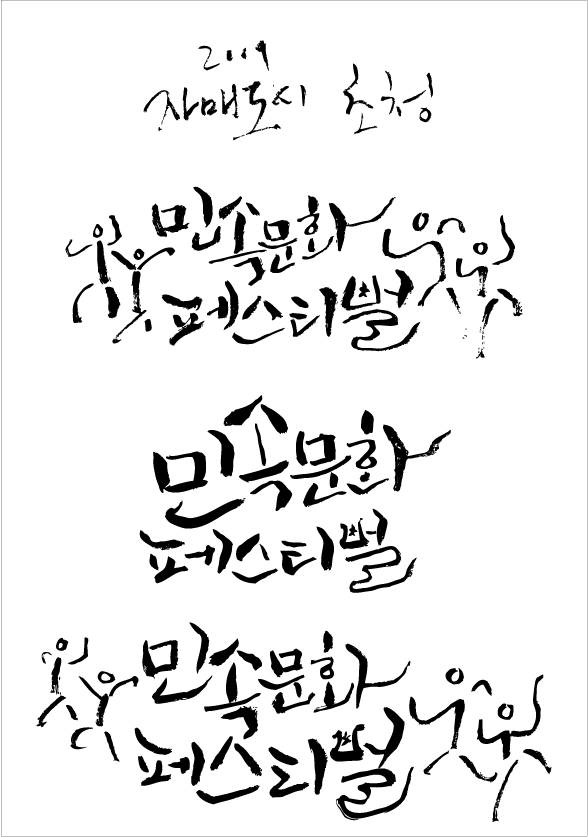 2009
자매도시 초청
민속문화
페스티벌
민속문화
페스티벌
민속문화
페스티벌